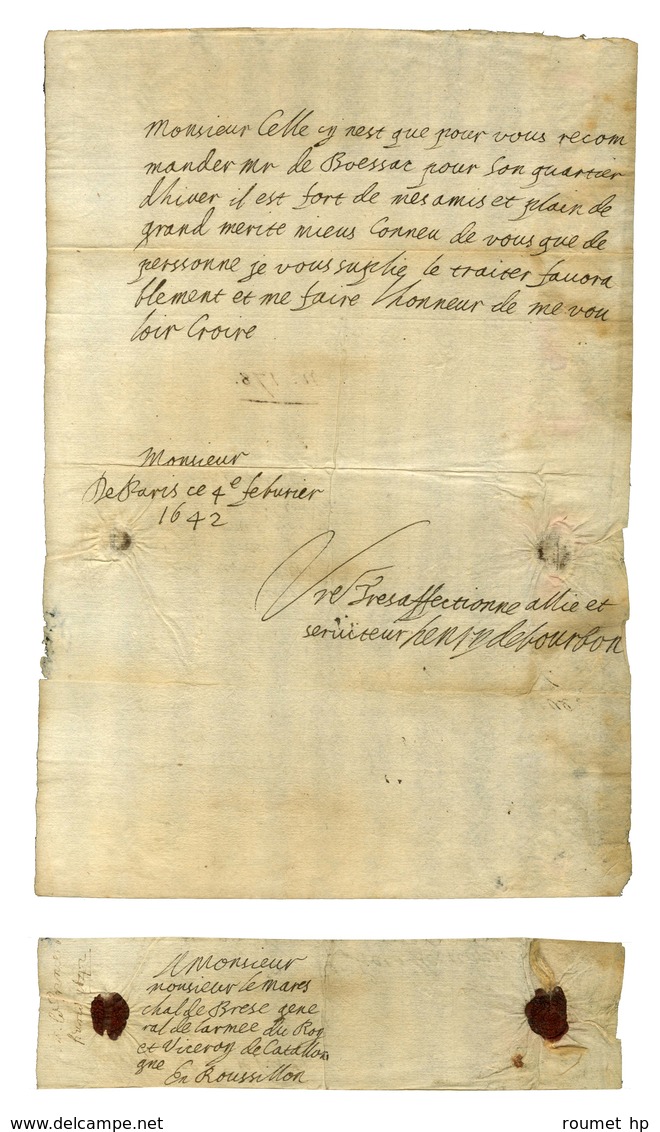 Monsieur Celle cy nest que pour vous recom
mander mr de Boessac pour son quartier
dhiver il est fort de mes amis et plain de
grand merite mieus Conneu de vous que de
perssonne je vous suplie le traiter favora
blement et me faire lhonneur de me vou
loir Croire
n. 178.
Monsieur
De Paris ce 4e februier
1642
Vre Tresaffectionne allie et
seruiteur henry de bourbon
A Monsieur
monsieur le mares
chal de Brese gene
ral de larmee du Roy
et Viceroy de Catallon
gne
En Roussillon
1642
www.delcampe.net
roumet hp